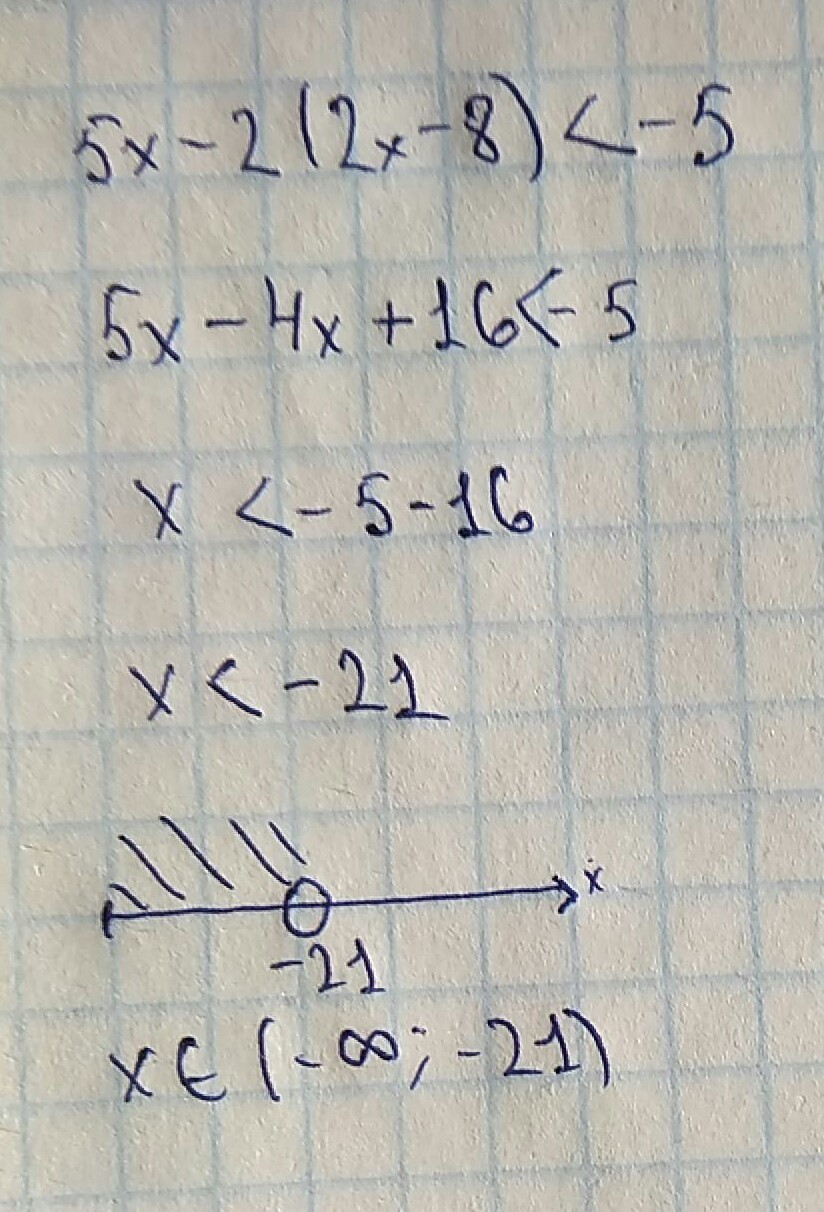 5x-2(2x-8)<-5
5x-4x+16<-5
x<-5-16
x<-21
x
-21
x∈(-∞;-21)